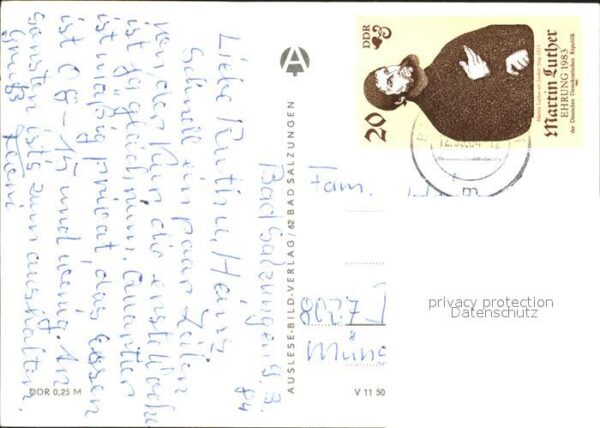 Bad Salzungen 9.3.
84
Liebe Ruth u. Heinz
Schnell ein paar Zeilen
von der Kur die erste Woche
ist ja gleich rum. Quartier
ist mäßig privat, das Essen
ist 08-15 und wenig. An
sonsten ist's zum aushalten.
Gruß
DDR 0,25 M
AUSLESE-BILD-VERLAG / 62 BAD SALZUNGEN
V 11 50
DDR
20
Martin Luther als Junker Jörg 1521
Martin Luther
EHRUNG 1983
der Deutschen Demokratischen Republik
Fam.
8027
privacy protection
Datenschutz